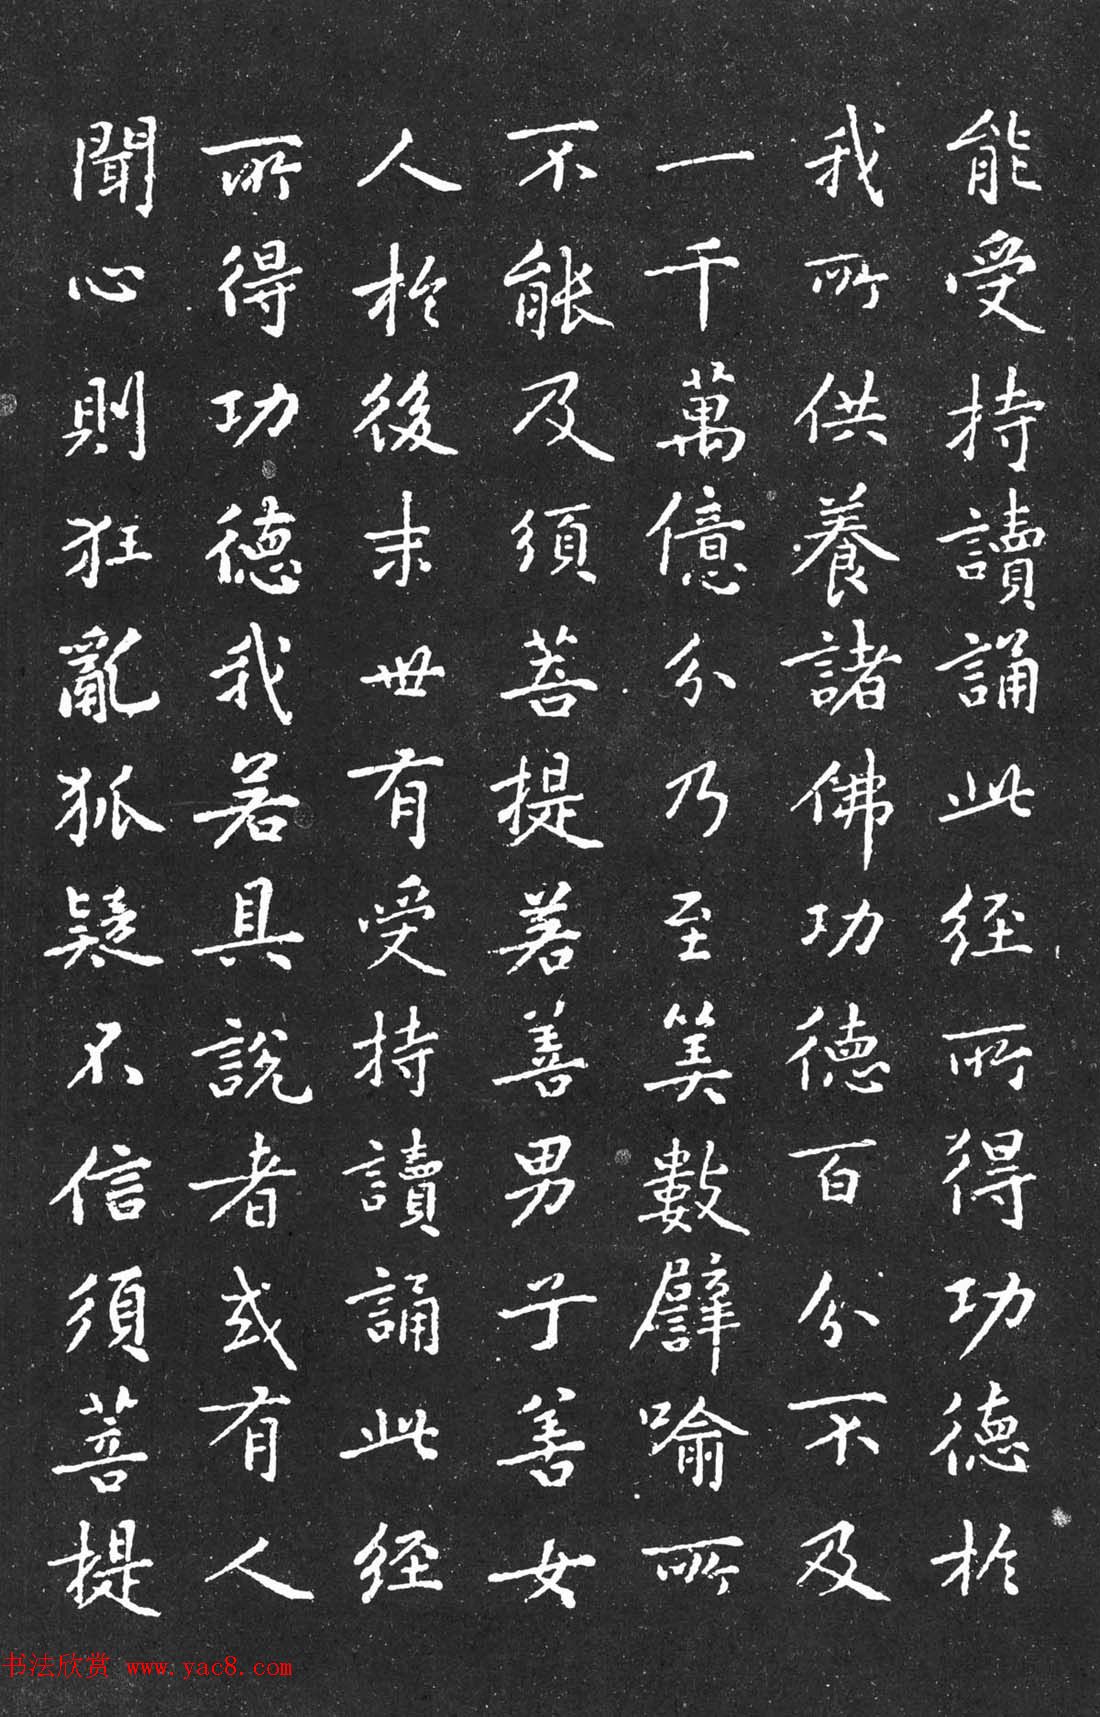 能受持讀誦此經所得功德於
我所供養諸佛功德百分不及
一千萬億分乃至筭數譬喻所
不能及須菩提若善男子善女
人於後末世有受持讀誦此經
所得功德我若具說者或有人
聞心則狂亂狐疑不信須菩提
书法欣赏 www.yac8.com